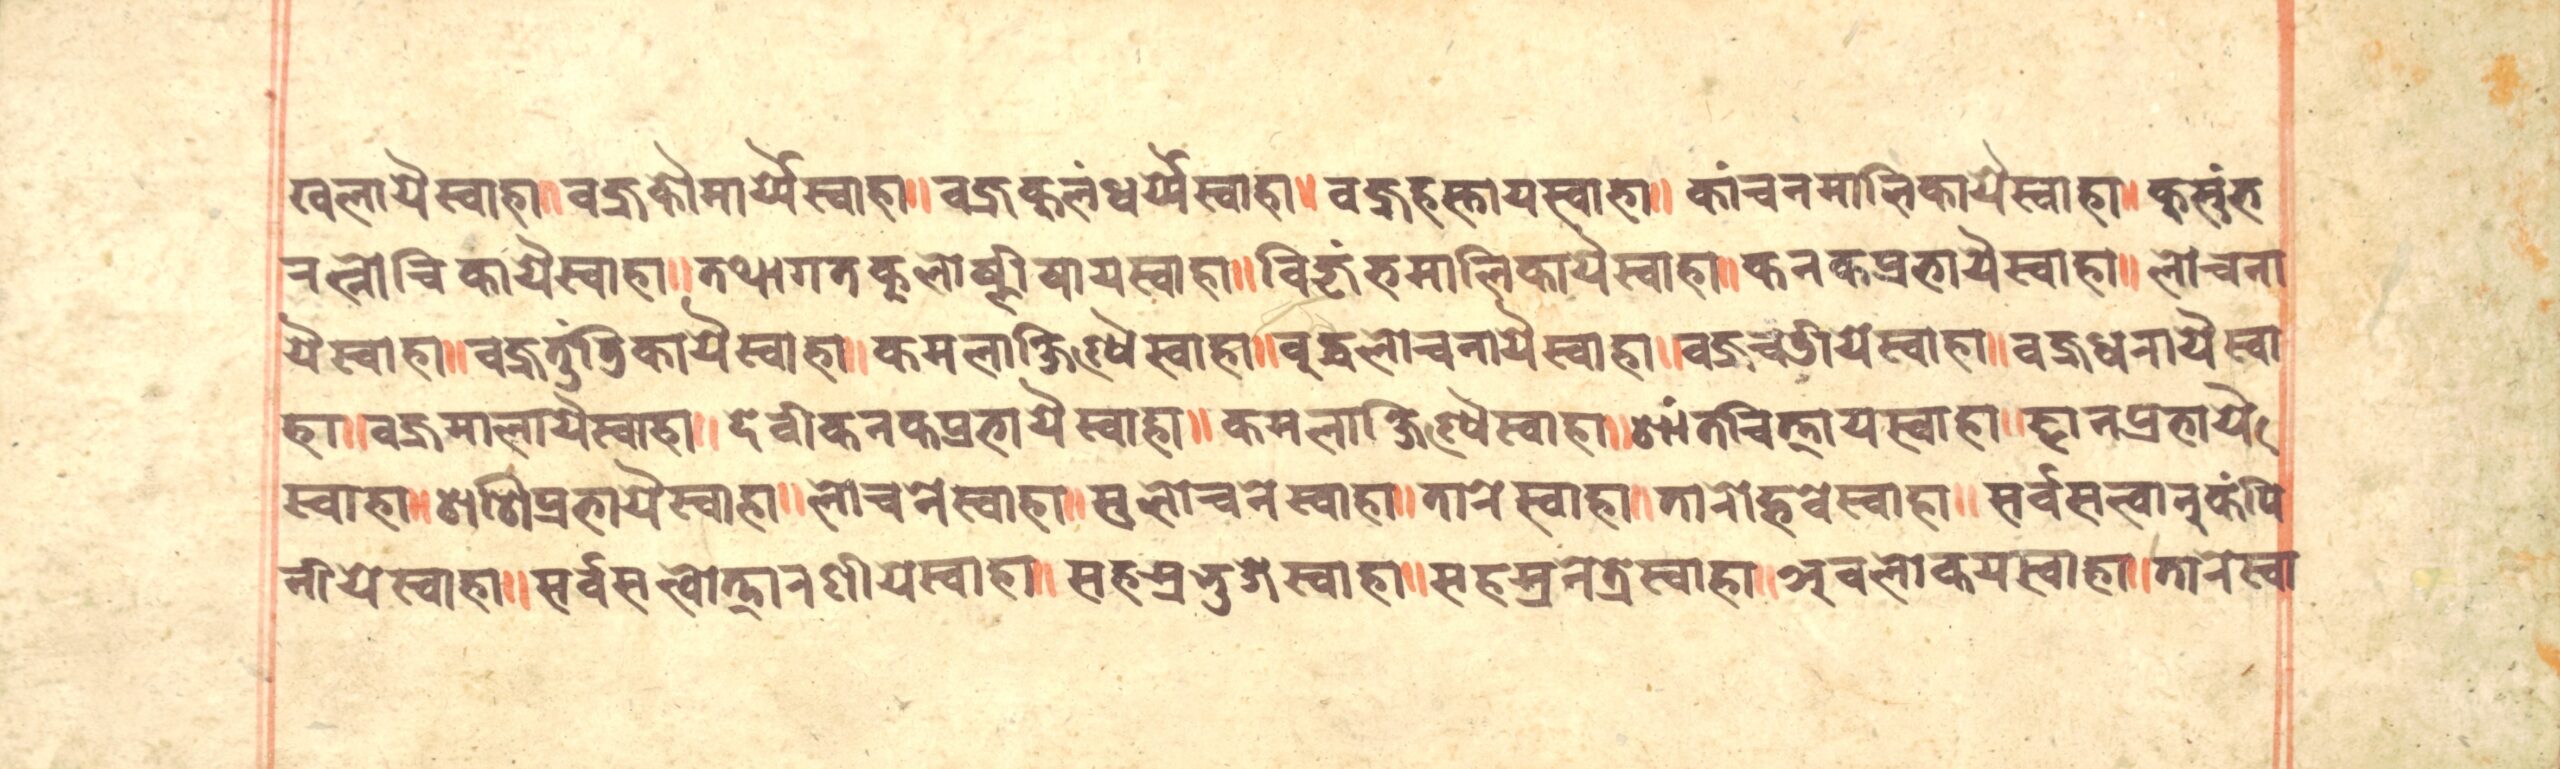 खलायैस्वाहा॥ वज्रकौमार्य्यैस्वाहा॥ वज्रकुलंधर्य्यैस्वाहा॥ वज्रहस्तायस्वाहा॥ कांचनमालिकायैस्वाहा॥ कुसुंभ
रत्नोचिकायैस्वाहा॥ तथागतकुलोष्णीषायस्वाहा॥ विजृंभमालिकायैस्वाहा॥ कनकप्रभायैस्वाहा॥ लोचना
यैस्वाहा॥ वज्रतुंडिकायैस्वाहा॥ कमलाक्षिण्यैस्वाहा॥ बुद्धलोचनायैस्वाहा॥ वज्रचंडीयेस्वाहा॥ वज्रधरायैस्वा
हा॥ वज्रमालायैस्वाहा॥ देवीकनकप्रभायैस्वाहा॥ कमलाक्षिण्यैस्वाहा॥ शांतचित्तायस्वाहा॥ ज्ञानप्रभायै
स्वाहा॥ शशिप्रभायैस्वाहा॥ लोचनेस्वाहा॥ सुलोचनेस्वाहा॥ तारेस्वाहा॥ तारोद्भवेस्वाहा॥ सर्वसत्वानुकंपि
नीयेस्वाहा॥ सर्वसत्वोत्तारणीयेस्वाहा॥ सहस्रभुजेस्वाहा॥ सहस्रनेत्रेस्वाहा॥ अवलोकयस्वाहा॥ तारेस्वा